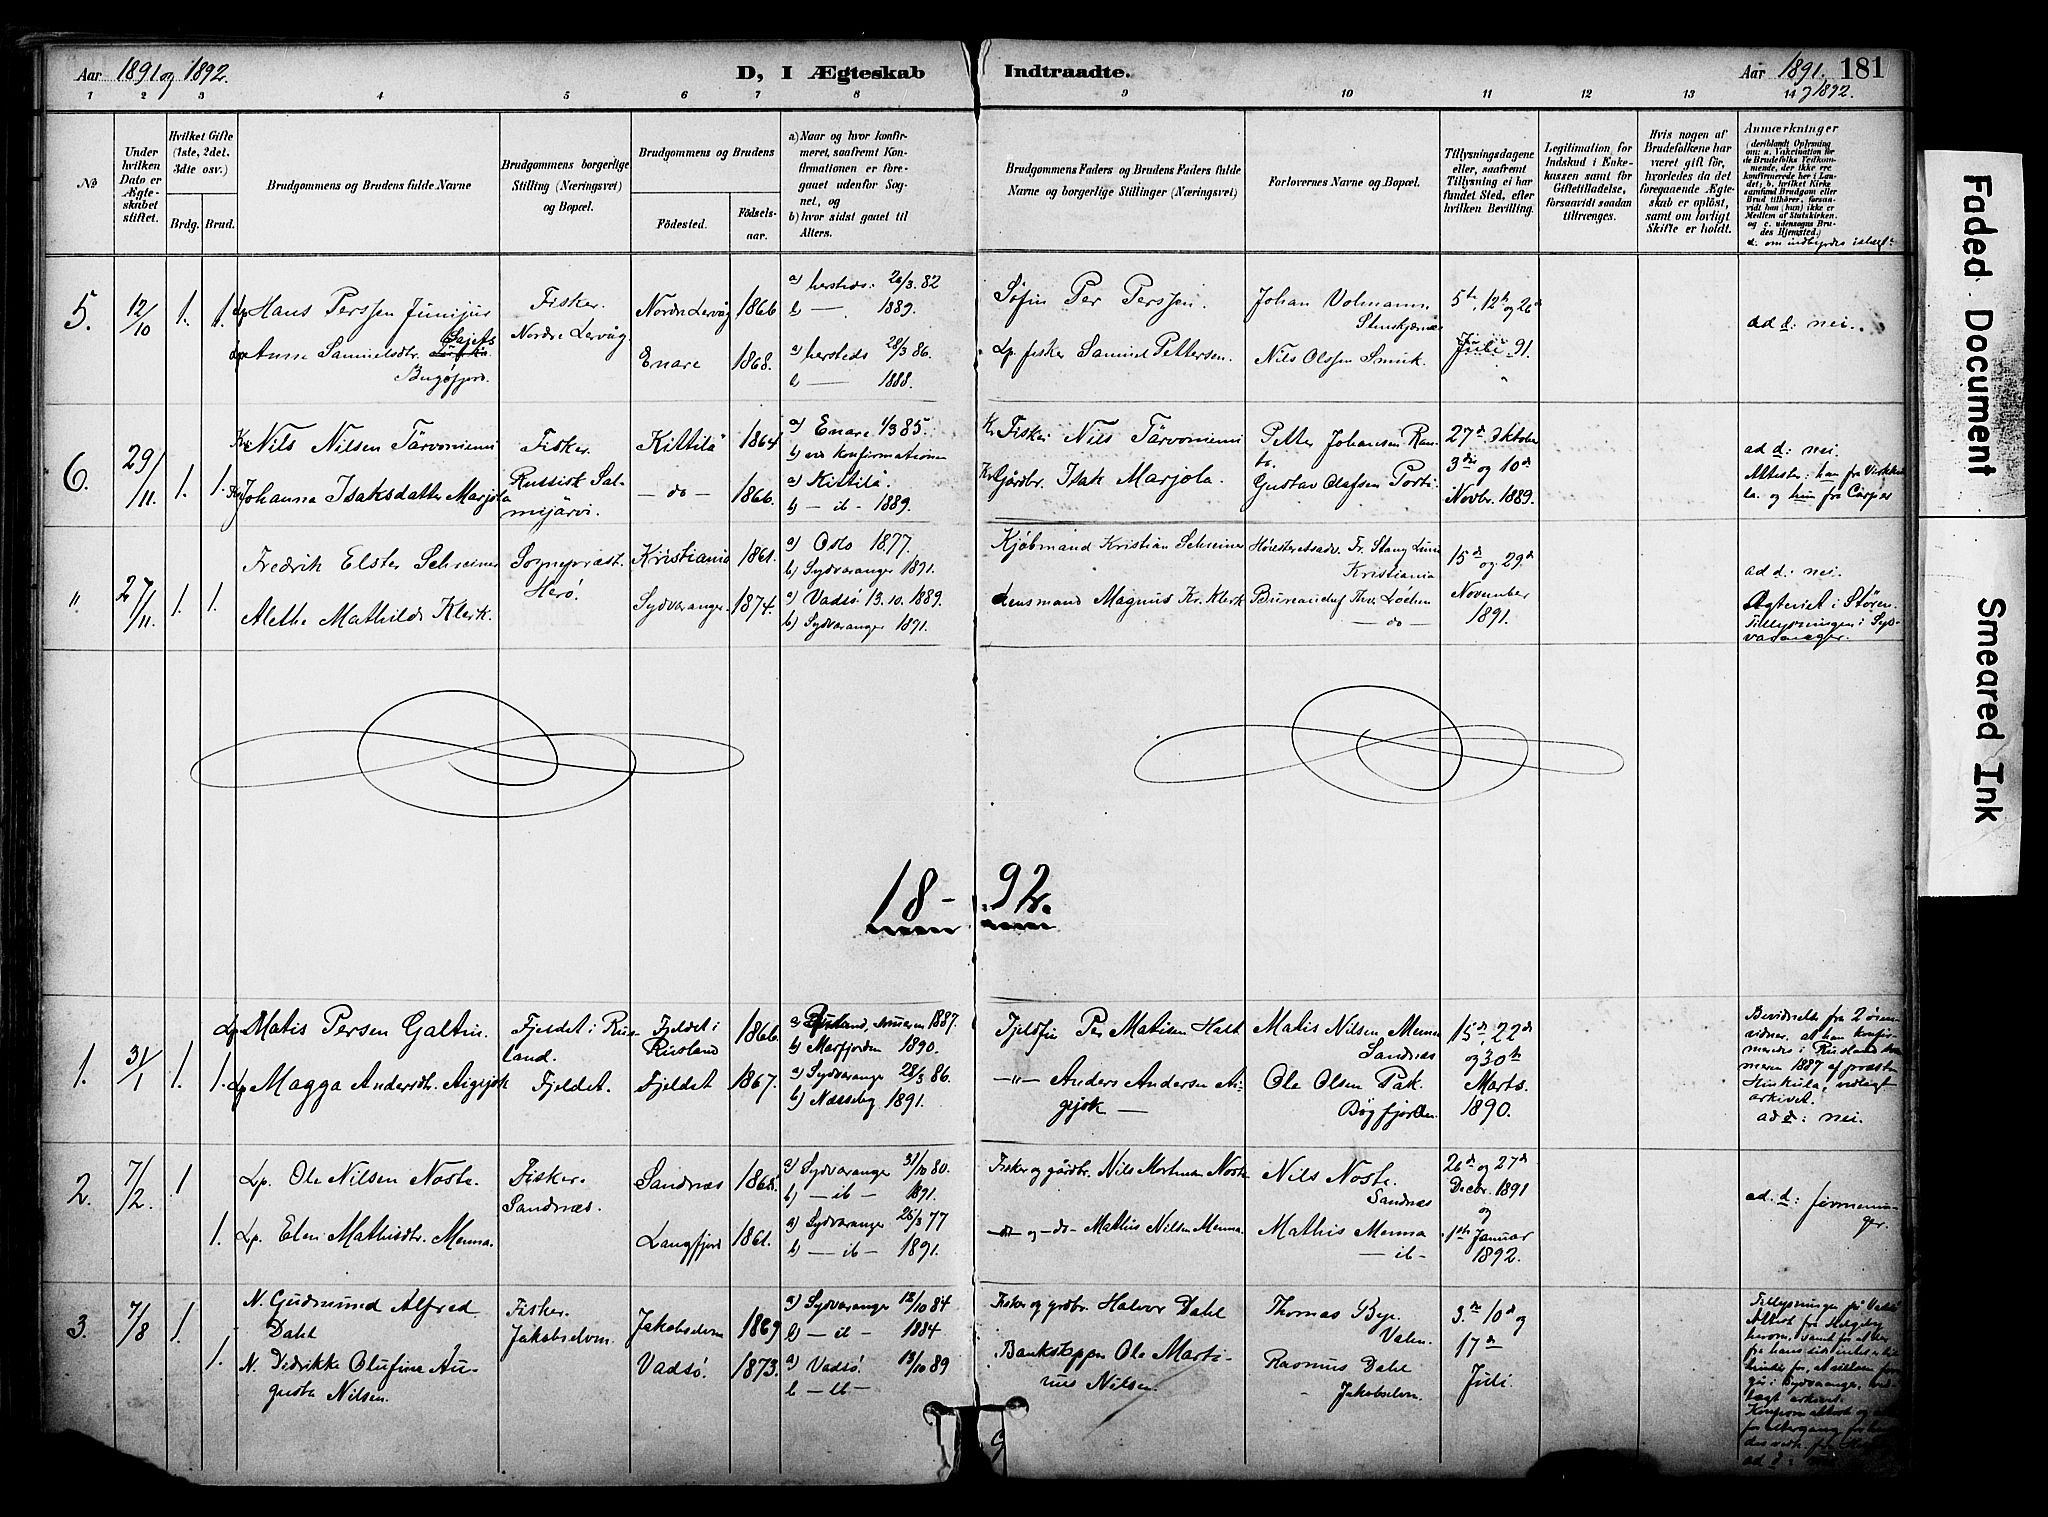 Aar 1891 og 1892.
D, I Ægteskab Indtraadte.
Aar 1891 181
og 1892.
1 2 3 4 5 6 7 8 9 10 11 12 13 14
No
Under hvilken Dato er Ægteskabet stiftet.
Hvilket Gifte (1ste, 2det, 3die osv.)
Brdg. Brud.
Brudgommens og Brudens fulde Navne
Brudgommens borgerlige Stilling (Næringsvei) og Bopæl.
Brudgommens og Brudens
Fødested.
Fødselsaar.
a) Naar og hvor konfirmeret, saafremt Konfirmationen er foregaaet udenfor Sognet, og
b) hvor sidst gaaet til Alters.
Brudgommens Faders og Brudens Faders fulde Navne og borgerlige Stillinger (Næringsvei)
Forlovernes Navne og Bopæl.
Tillysningsdagene eller, saafremt Tillysning ei har fundet Sted, efter hvilken Bevilling.
Legitimation for Indskud i Enkekassen samt for Giftetilladelse, forsaavidt saadan tiltrænges.
Hvis nogen af Brudefolkene har været gift før, hvorledes da det foregaaende Ægteskab er opløst, samt om lovligt Skifte er holdt.
Anmærkninger
(deriblandt Oplysning om: a. Vakcination for de Brudefolks Vedkommende, der ikke ere konfirmerede her i Landet; b. hvilket Kirkesamfund Brudgom eller Brud tilhører, forsaavidt han (hun) ikke er Medlem af Statskirken, og c. udensogns Brudes Hjemsted.)
d. om indbyrdes
5. 12/10 1. 1.
Lp Hans Perssen
Fisker.
Nordre Lervåg
Nordre Lervåg 1866
a) hersteds: 20/3.82
b — . 1889.
Søfin Per Perssen.
Johan Volmann
5te, 12te og 26de
Juli 91.
ad d: nei.
Lp Anna Samuelsdtr.
Bugøfjord.
Enare 1868.
a) hersteds 28/3 86.
b — 1888.
Lp. fisker Samuel Pettersen.
Nils Olssen Smuk.
6. 29/11. 1. 1.
Kv Nils Nilsen Tärvoniemi
Fisker.
Russisk Salmijärvi.
Kittilä 1864
a) Enare 1/3 85.
b) ved konfirmationen
Kv. Fisker Nils Tärvoniemi
Petter Johansen
27de Oktober
3die og 10de
Novbr. 1889.
ad d: nei.
Attester: han fra
og hun fra
Kv Johanna Isaksdatter Marjola
— do — 1866.
a) Kittilä.
b) — ib — 1889.
Kv. Gårdbr. Isak Marjola.
Gustav Olafsen
" 27/11. 1. 1.
Fredrik Elster Schreiner
Sogneprest.
Herø.
Kristiania 1861.
a) Oslo 1877.
b) Sydvaranger 1891.
Kjøbmand Kristian Schreiner
Høiesteretsadv. Fr. Stang Lund
Kristiania
15de og 29de
November
1891.
ad d: nei.
Tillysningen i Sydvaranger.
Alethe Mathilde Klerk.
Sydvaranger 1874.
a) Vadsø 13.10.1889.
b) Sydvaranger 1891.
Lensmand Magnus Kr. Klerk
— do —
18 – 92.
1. 31/1 1. 1.
Lp Matis Persen
Fjeldet i Rusland.
Fjeldet.
Fjeldet i Rusland 1866.
a) Rusland, sommeren 1887.
b) 1890.
Fjeldfin Per Matisen
Matis Nilsen Menna
Sandnæs
15de, 22de
og 30te
Marts.
1890.
Bevidnelse fra 2 øren-
vidner, at han konfir-
meredes i Rusland som-
meren 1887 af præsten
vedlagt
arkivet.
ad d: nei.
Lp Magga Andersdtr. Aigijok
Fjeldet 1867.
a) Sydvaranger 28/3 86.
b) Næsseby 1891.
— „ — Anders Andersen Ai-
gijok —
Ole Olsen Pak.
Bøgfjorden.
2. 7/2. 1 1.
Lp. Ole Nilsen Noste.
Fisker.
Sandnæs.
Sandnæs 1865.
a) Sydvaranger 31/10 80.
b) — ib — 1891.
Fisker og gårdbr. Nils Mortensen Noste
Nils Noste.
Sandnæs
26de og 27de
Decbr. 1891
og
1ste Januar
1892.
ad. d:
Lp. Elen Mathisdtr. Menna.
Langfjord 1861.
a) Sydvaranger 25/3 77
b — ib — 1891.
— do — og — do — Mathis Nilsen Menna.
Mathis Menna
— ib —
3. 7/8 1. 1.
N. Gudmund Alfred
Dahl
Fisker.
Jakobselven.
Jakobselven 1869
a) Sydvaranger 12/10 84
b — ib — 1884
Fisker og grdbr. Halvor Dahl
Thomas Bye.
Valen.
3die 10de og
17de
Juli
N. Didrikke Olufina Au-
gusta Nilsen.
Vadsø. 1873.
a) Vadsø. 13/10 89
b — ib —
Ole Marti-
nus Nilsen.
Rasmus Dahl
Jakobselven.
Faded Document
Smeared Ink